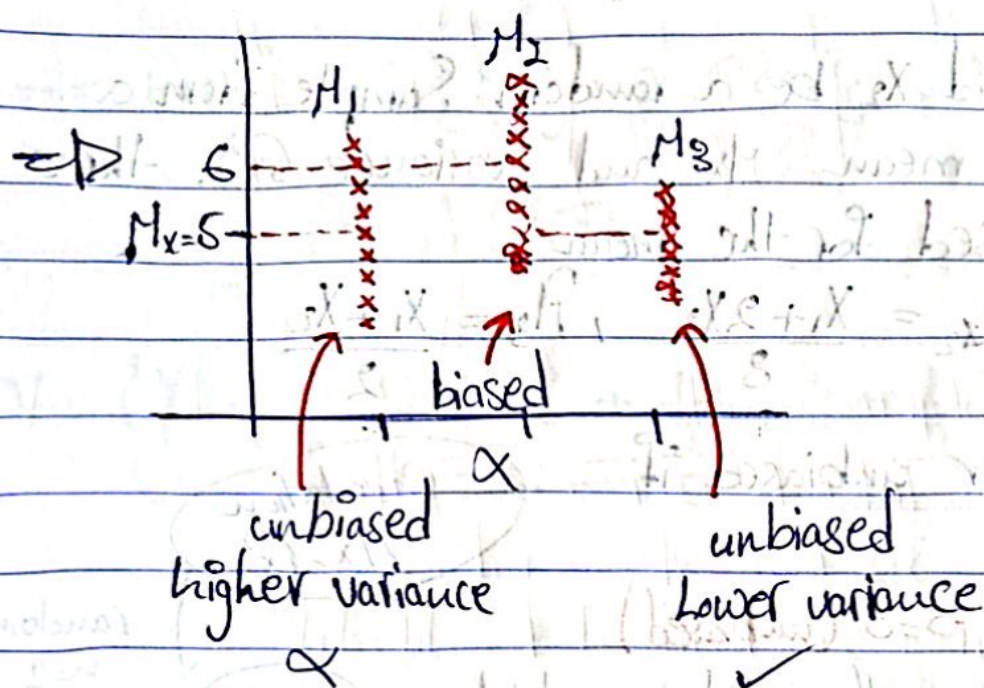 M₁
M₂
M₃
6
Mx=5
biased
α
unbiased
higher variance
α
unbiased
Lower variance
✓